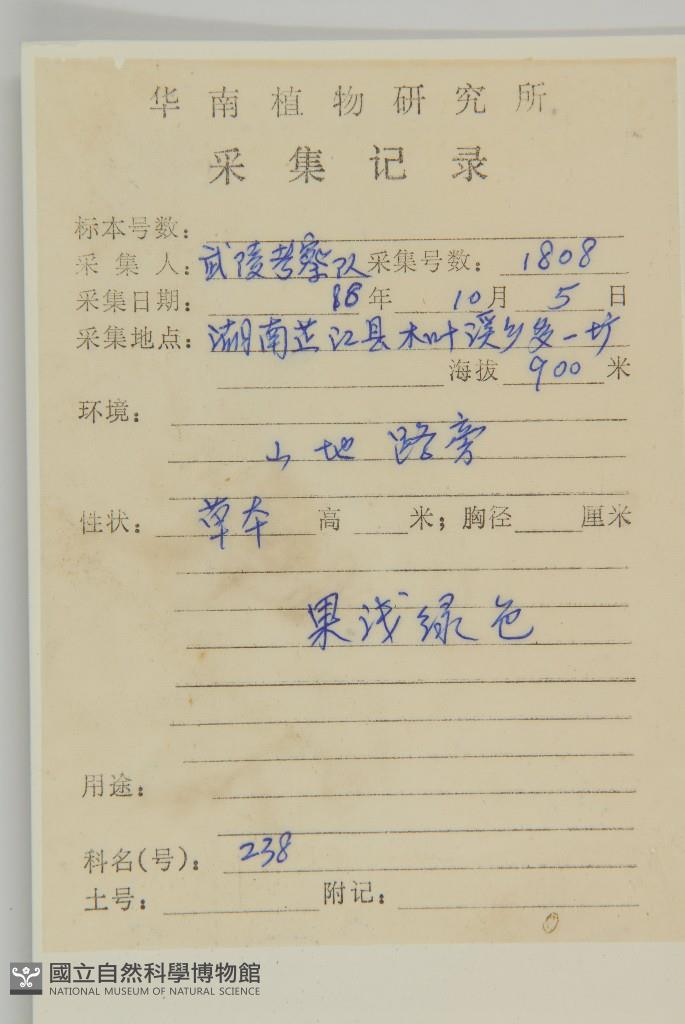 华南植物研究所
采集记录
标本号数：
采集人：武陵考察队 采集号数：1808
采集日期：18年10月5日
采集地点：湖南芷江县木叶溪乡多一圹
海拔 900 米
环境：
山地路旁
性状：草本 高 米；胸径 厘米
果浅绿色
用途：
科名(号)：238
土号： 附记：
國立自然科學博物館
NATIONAL MUSEUM OF NATURAL SCIENCE